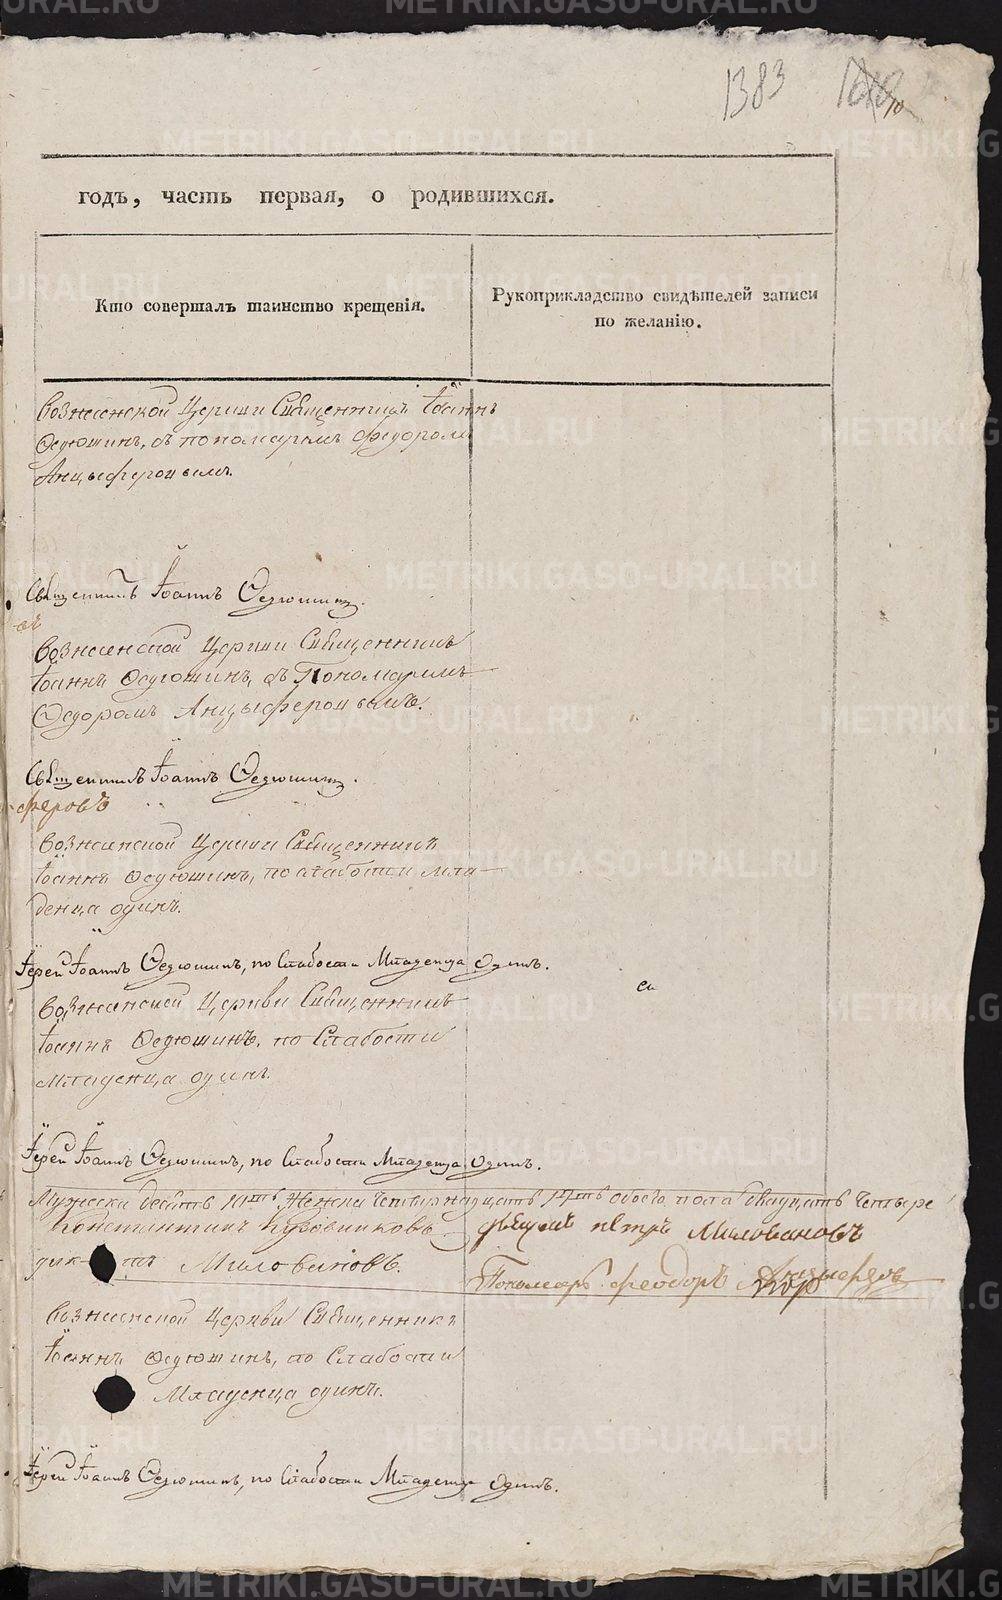 1383
10
годъ, часть первая, о родившихся.
Кто совершалъ таинство крещенія.
Рукоприкладство свидѣтелей записи
по желанію.
Вознесенской Церкви Священникъ Іоаннъ
Ѳедюшинъ, съ пономаремъ Федоромъ
Анцыферовымъ.
Священникъ Іоаннъ Ѳедюшинъ.
Вознесенской Церкви Священникъ
Іоаннъ Ѳедюшинъ, съ Пономаремъ
Ѳедоромъ Анцыферовымъ.
Священникъ Іоаннъ Ѳедюшинъ.
феровъ
Вознесенской Церкви Священникъ
Іоаннъ Ѳедюшинъ, по слабости мла-
денца одинъ.
Іерей Іоаннъ Ѳедюшинъ, по Слабости Младенца Одинъ.
Вознесенской Церкви Священникъ
Іоаннъ Ѳедюшинъ, по Слабости
Младенца одинъ.
Іерей Іоаннъ Ѳедюшинъ, по Слабости Младенца Одинъ.
Мужеска десять 10ть Женска четырнадцать 14ть обоего пола двадцать четыре
Константинъ
Петръ Миловановъ
Миловановъ.
Пономарь Феодоръ Анцыферовъ
Вознесенской Церкви Священникъ
Іоаннъ Ѳедюшинъ, по Слабости
Младенца одинъ.
Іерей Іоаннъ Ѳедюшинъ, по Слабости Младенца Одинъ.
METRIKI.GASO-URAL.RU